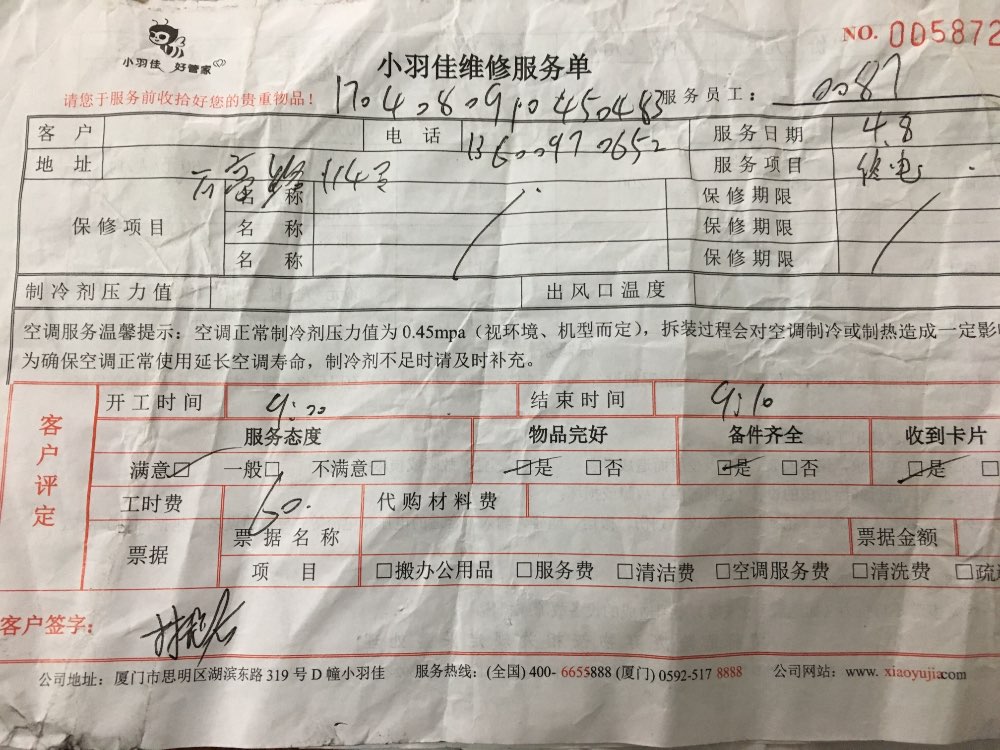 NO. 005872
小羽佳 好管家
小羽佳维修服务单
请您于服务前收拾好您的贵重物品！ 1704080910450483 服务员工： 0087
客户 电话 13600970652 服务日期 4.8
地址 114号 服务项目 修电
保修项目 名称 保修期限
名称 保修期限
名称 保修期限
制冷剂压力值 出风口温度
空调服务温馨提示：空调正常制冷剂压力值为0.45mpa（视环境、机型而定），拆装过程会对空调制冷或制热造成一定影
为确保空调正常使用延长空调寿命，制冷剂不足时请及时补充。
客户评定
开工时间 9:00 结束时间 9:10
服务态度 物品完好 备件齐全 收到卡片
满意□ 一般□ 不满意□ □是 □否 □是 □否 □是 □否
工时费 50. 代购材料费
票据 票据名称 票据金额
项目 □搬办公用品 □服务费 □清洁费 □空调服务费 □清洗费 □疏
客户签字：
公司地址：厦门市思明区湖滨东路319号D幢小羽佳 服务热线：(全国) 400- 6655888 (厦门) 0592-517 8888 公司网站：www. xiaoyujia.com